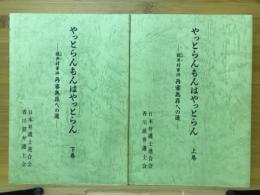 やっとらんもんはやっとらん
―財田川事件 再審無罪への道―
上巻
日本弁護士連合会
香川県弁護士会
やっとらんもんはやっとらん
―財田川事件 再審無罪への道―
下巻
日本弁護士連合会
香川県弁護士会